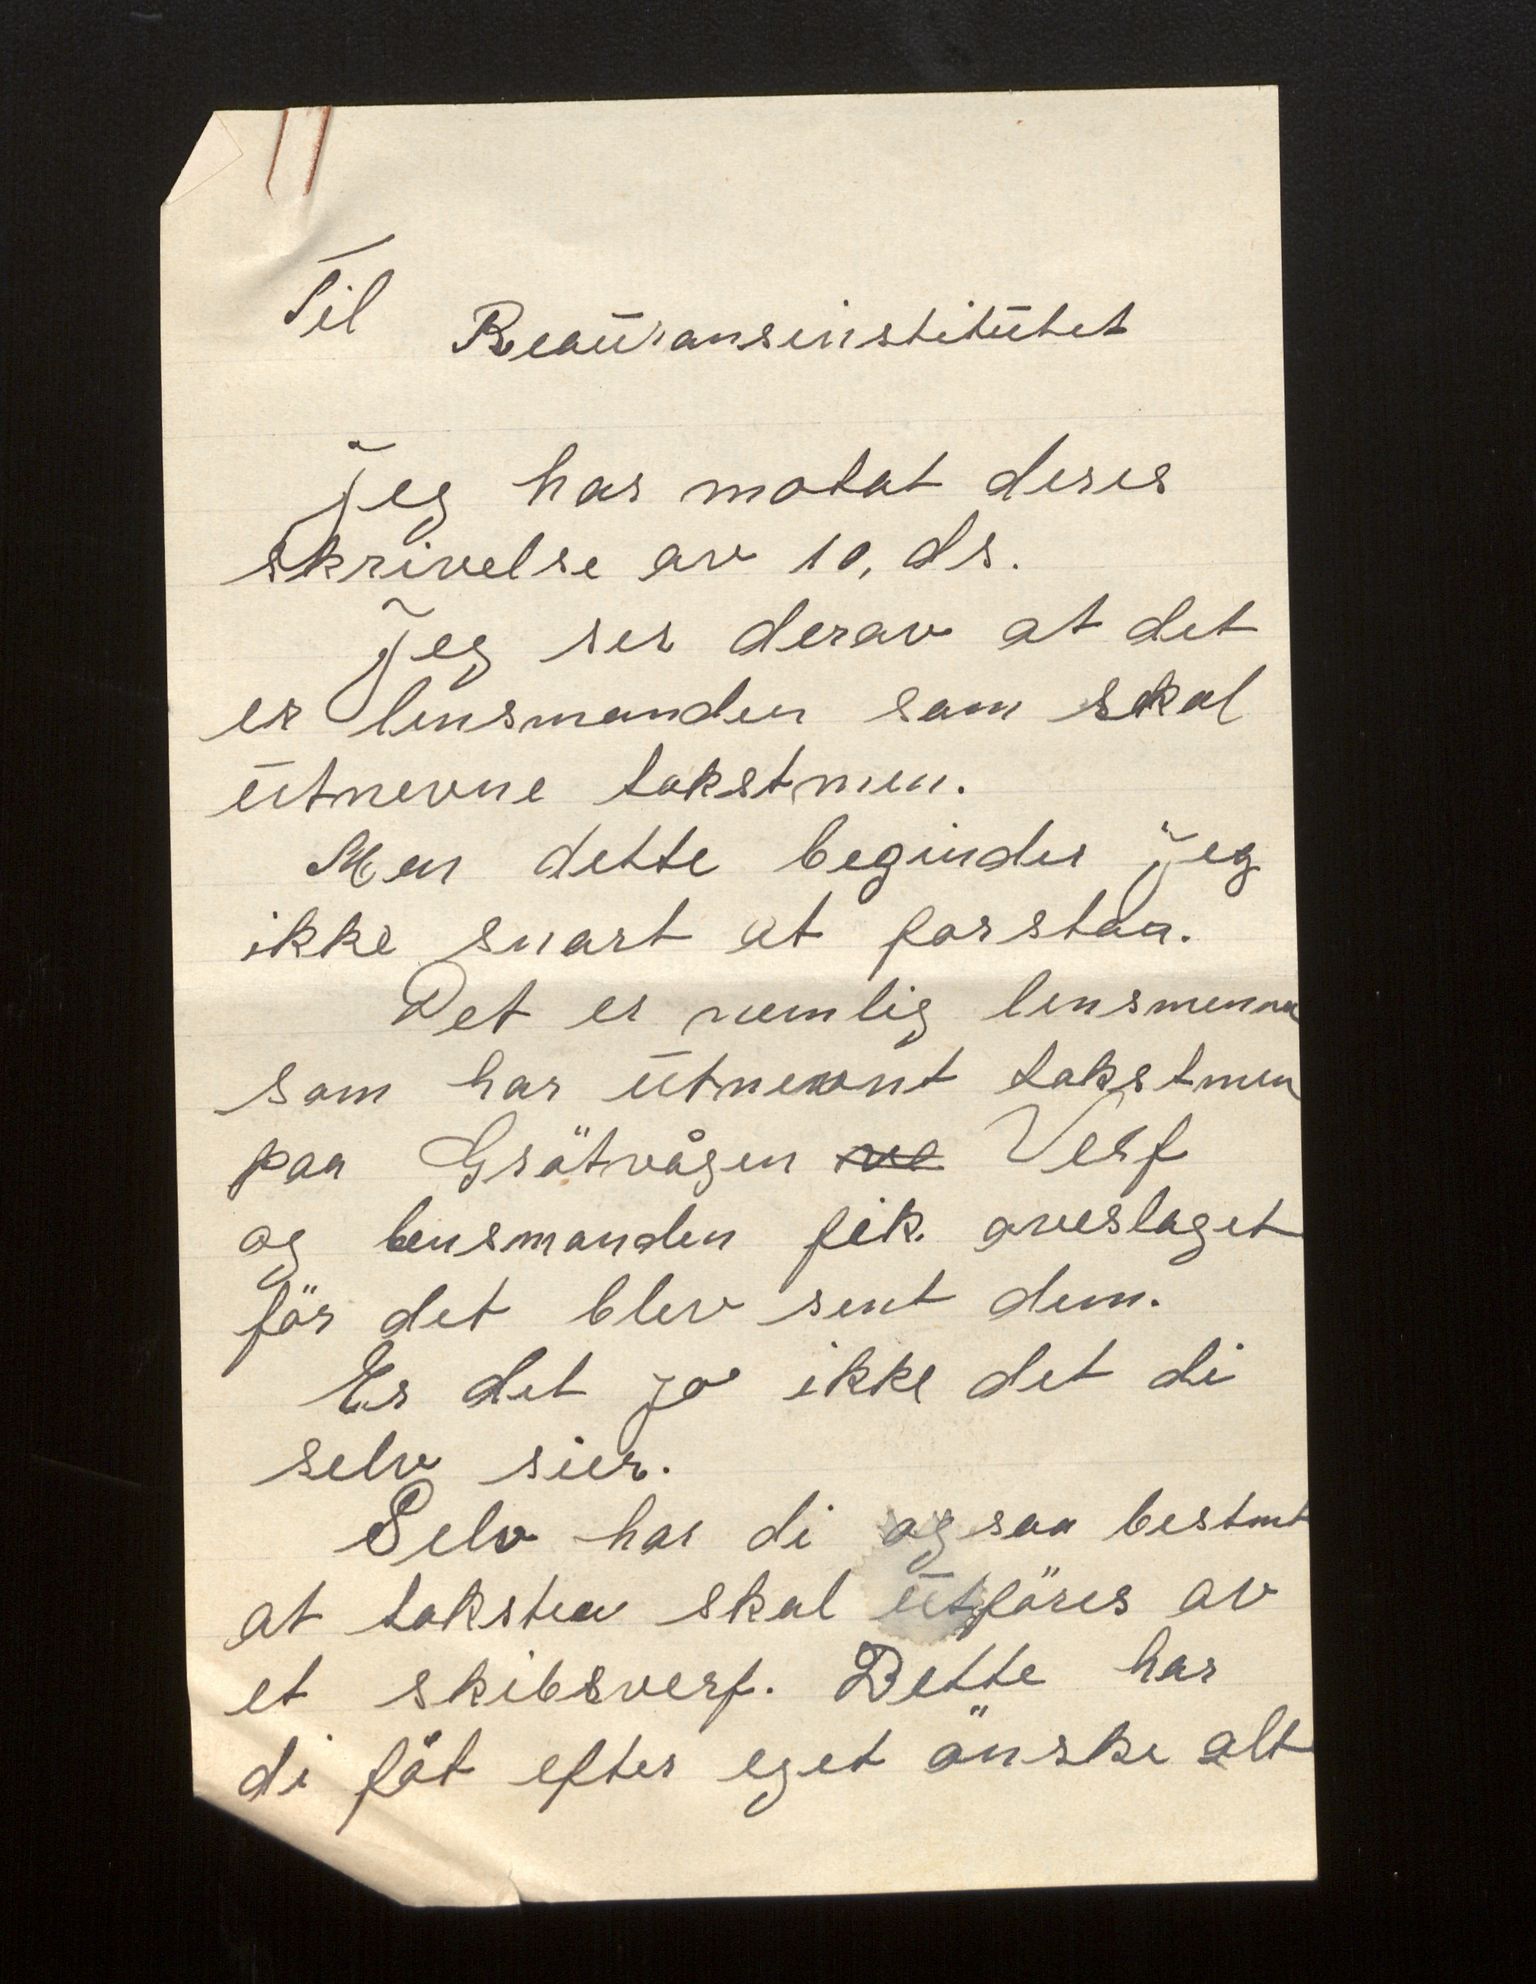 Til
Reaūransinstitūtet
Jeg har motat deres
skrivelse av 10, ds.
Jeg ser derav at det
er lensmanden som skal
ūtnevne takstmen.
Men dette beginder jeg
ikke snart at forstaa.
Det er nemlig lensmenna
som har ūtnevnt takstmen
paa Grötvågen Verf
og lensmanden fik overslaget
för det blev sent dem.
Er det jo ikke det di
selv sier.
Selv har di ogsaa bestmt
at taksten skal ūtföres av
et skibsverf. Dette har
di fåt efter eget önske alt